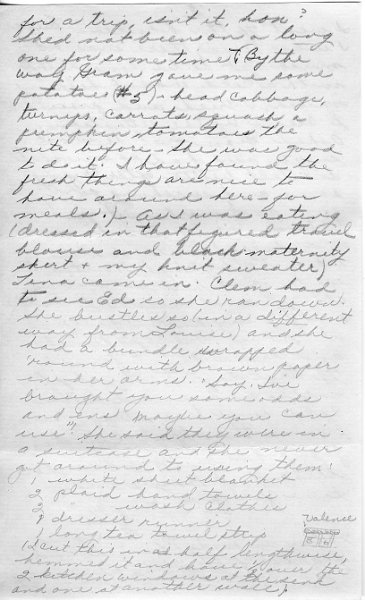 for a trip, isn't it, hon?
She'd not been on a long
one for some time. By the
way Gram gave me some
potatoes (#5), head cabbage,
turnips, carrots, squash, a
pumpkin, tomatoes the
nite before - she was good
to do it. I have found the
fresh things are nice to
have around here - for
meals.) - As I was eating
(dressed in that figured travel
blouse and black maternity
skirt + my knit sweater)
Tena came in. Clem had
to see Ed so she ran down.
She bustles so (in a different
way from Louise) and she
had a bundle wrapped
'round with brown paper
in her arms. "Say I've
brought you some odds
and ens maybe you can
use". She said they were in
a suitcase and she never
got around to using them:
1 white sheet blanket
2 plaid hand towels
2 wash clothes
1 dresser runner
long tea towel strip
(I cut this in half lengthwise,
hemmed it and have it over the
2 kitchen windows at the sink
and one at another wall.)
Valence